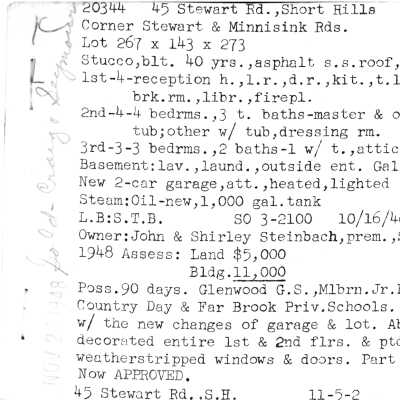 20344 45 Stewart Rd.,Short Hills
Corner Stewart & Minnisink Rds.
Lot 267 x 143 x 273
Stucco,blt. 40 yrs.,asphalt s.s.roof,
1st-4-reception h.,l.r.,d.r.,kit.,t.l
brk.rm.,libr.,firepl.
2nd-4-4 bedrms.,3 t. baths-master & o
tub;other w/ tub,dressing rm.
3rd-3-3 bedrms.,2 baths-1 w/ t.,attic
Basement:lav.,laund.,outside ent. Gal
New 2-car garage,att.,heated,lighted
Steam:Oil-new,1,000 gal.tank
L.B:S.T.B. SO 3-2100 10/16/4
Owner:John & Shirley Steinbach,prem.,
1948 Assess: Land $5,000
Bldg.11,000
Poss.90 days. Glenwood G.S.,Mlbrn.Jr.
Country Day & Far Brook Priv.Schools.
w/ the new changes of garage & lot. Ab
decorated entire 1st & 2nd flrs. & pt
weatherstripped windows & doors. Part
Now APPROVED.
45 Stewart Rd.,S.H. 11-5-2